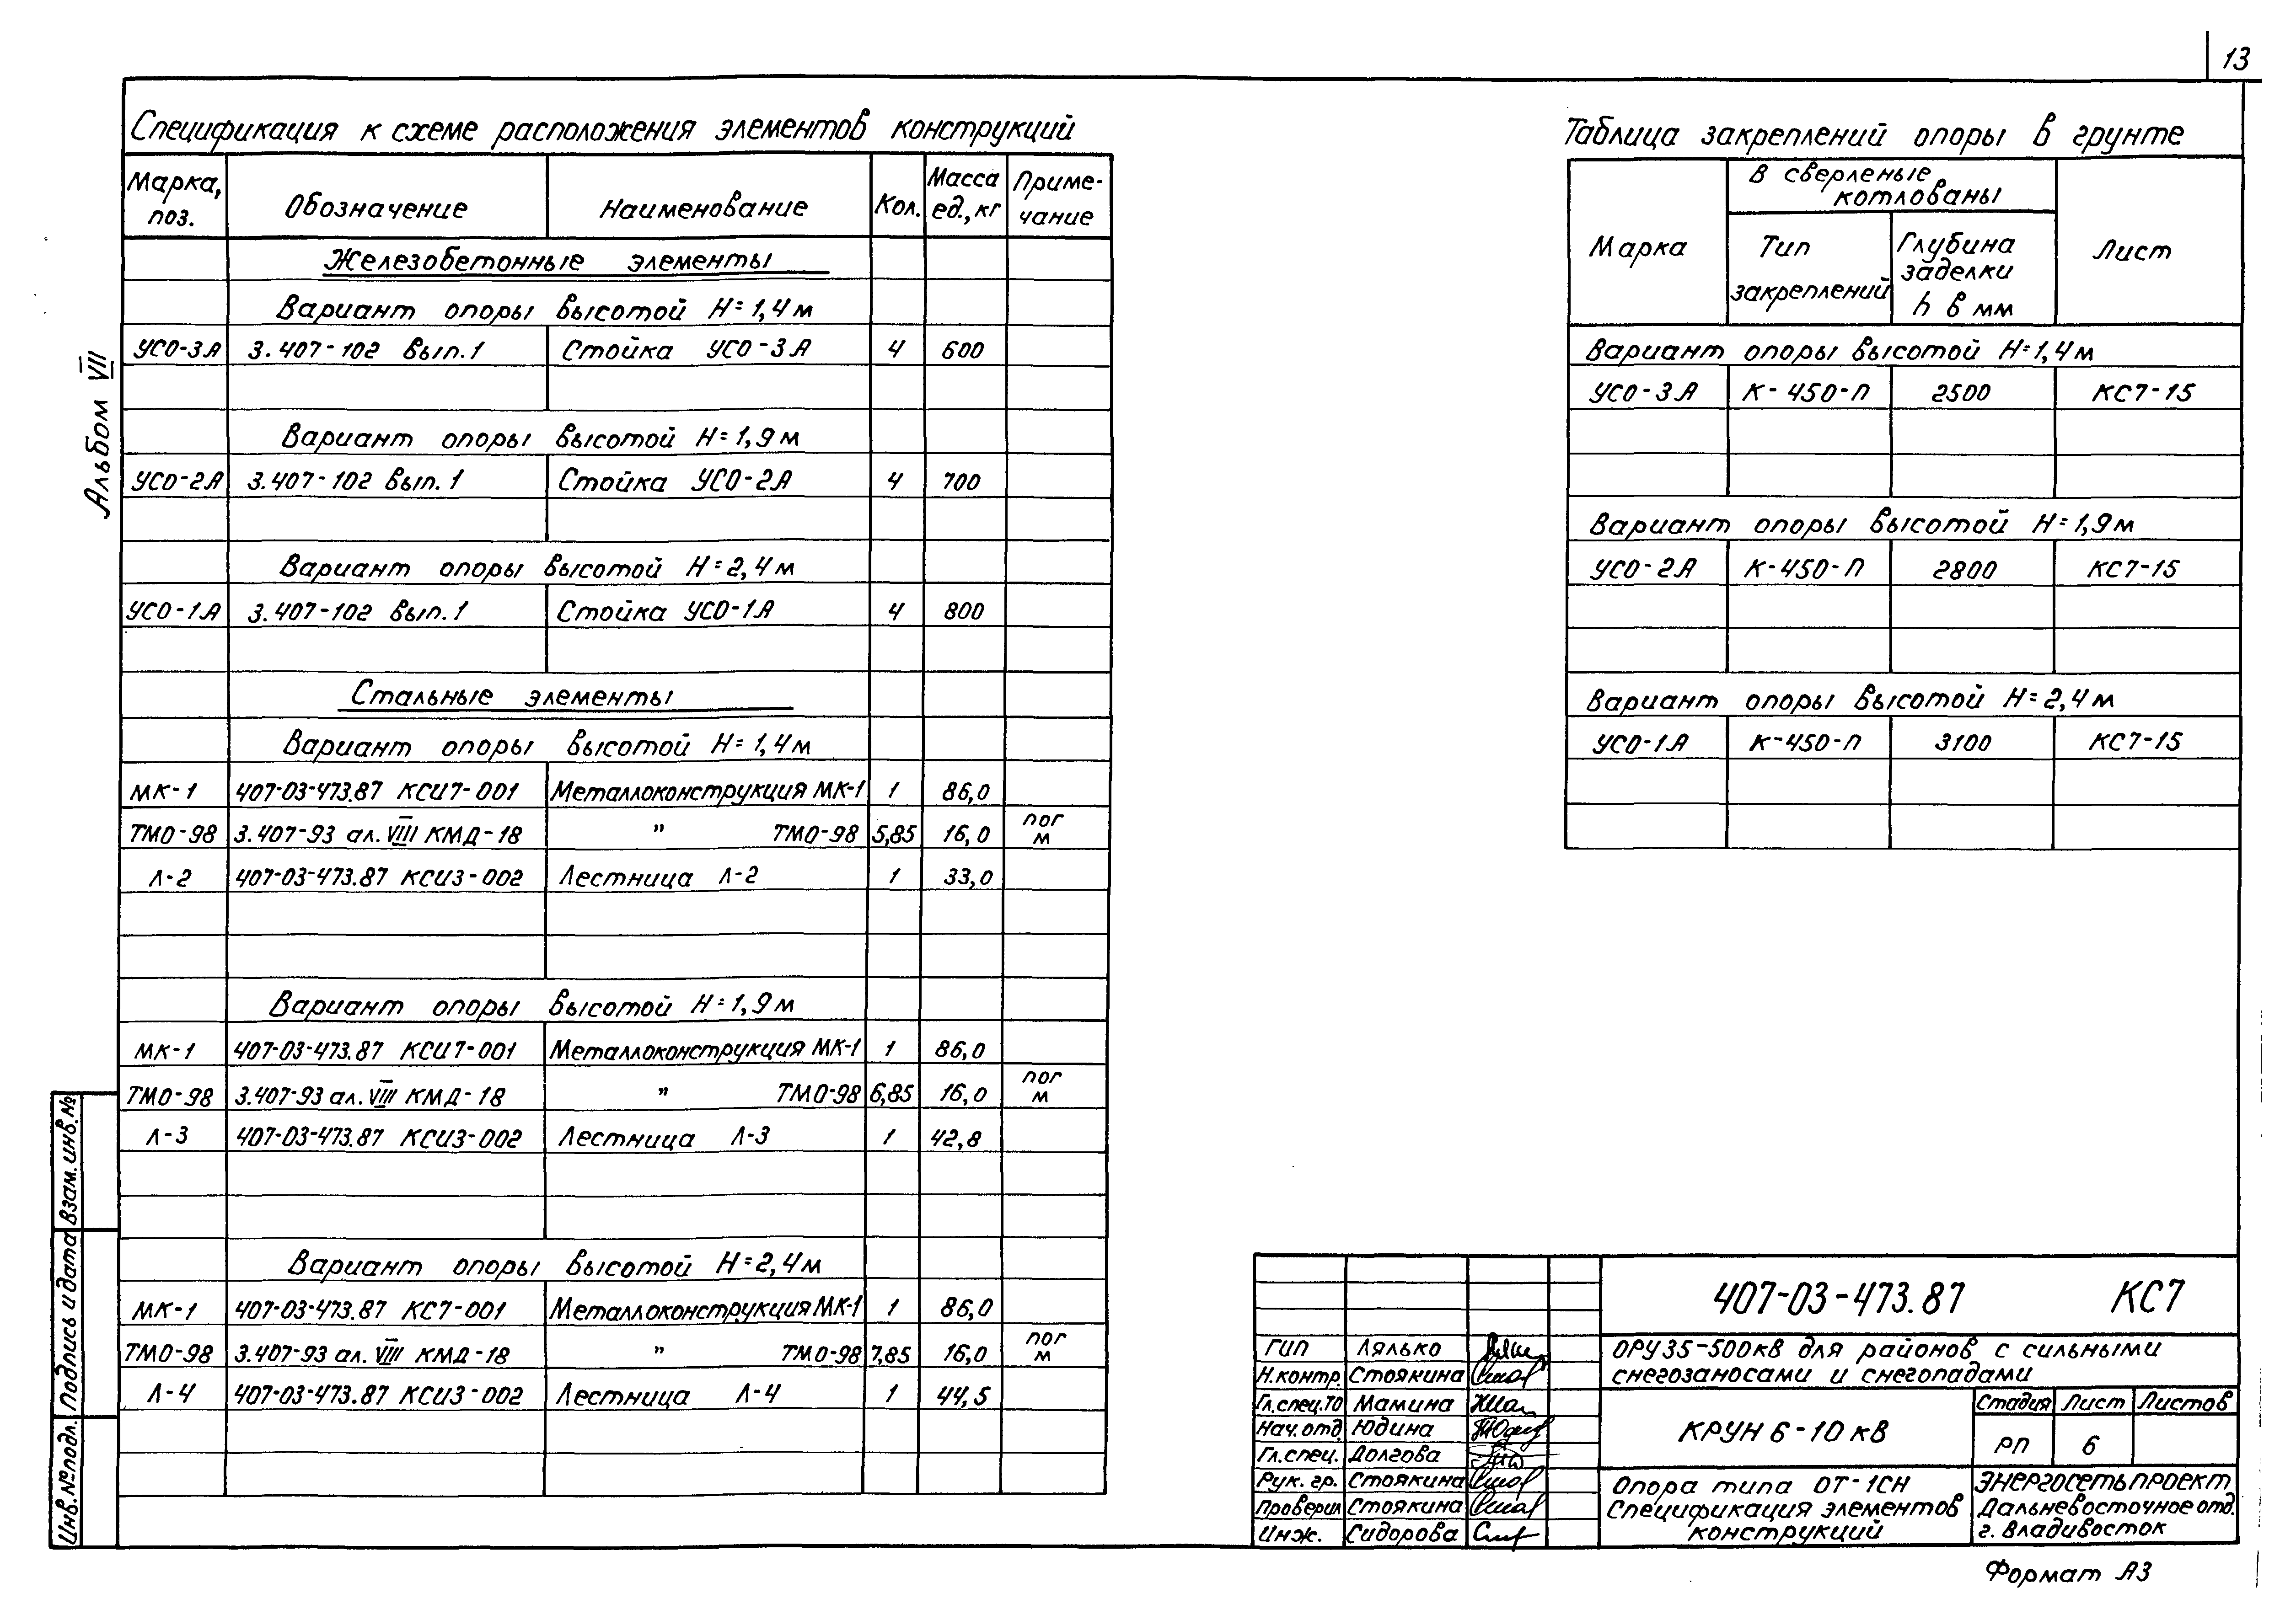 13
Спецификация к схеме расположения элементов конструкций
Марка, поз. Обозначение Наименование Кол. Масса ед., кг Приме-чание
Железобетонные элементы
Вариант опоры высотой Н=1,4м
УСО-3А 3.407-102 Вып.1 Стойка УСО-3А 4 600
Вариант опоры высотой Н=1,9м
УСО-2А 3.407-102 Вып.1 Стойка УСО-2А 4 700
Вариант опоры высотой Н=2,4м
УСО-1А 3.407-102 Вып.1 Стойка УСО-1А 4 800
Стальные элементы
Вариант опоры высотой Н=1,4м
МК-1 407-03-473.87 КСИ7-001 Металлоконструкция МК-1 1 86,0
ТМО-98 3.407-93 ал. VIII КМД-18 " ТМО-98 5,85 16,0 пог м
Л-2 407-03-473.87 КСИ3-002 Лестница Л-2 1 33,0
Вариант опоры высотой Н=1,9м
МК-1 407-03-473.87 КСИ7-001 Металлоконструкция МК-1 1 86,0
ТМО-98 3.407-93 ал. VIII КМД-18 " ТМО-98 6,85 16,0 пог м
Л-3 407-03-473.87 КСИ3-002 Лестница Л-3 1 42,8
Вариант опоры высотой Н=2,4м
МК-1 407-03-473.87 КС7-001 Металлоконструкция МК-1 1 86,0
ТМО-98 3.407-93 ал. VIII КМД-18 " ТМО-98 7,85 16,0 пог м
Л-4 407-03-473.87 КСИ3-002 Лестница Л-4 1 44,5
Таблица закреплений опоры в грунте
Марка В сверленые котлованы Лист
Тип закреплений Глубина заделки h в мм
Вариант опоры высотой Н=1,4м
УСО-3А К-450-П 2500 КС7-15
Вариант опоры высотой Н=1,9м
УСО-2А К-450-П 2800 КС7-15
Вариант опоры высотой Н=2,4м
УСО-1А К-450-П 3100 КС7-15
Альбом VII
Взам. инв. №
Подпись и дата
Инв. № подл.
407-03-473.87 КС7
ГИП Лялько
Н.контр. Стоякина
Гл.спец.ТО Мамина
Нач.отд. Юдина
Гл.спец. Долгова
Рук. гр. Стоякина
Проверил Стоякина
Инж. Сидорова
ОРУ 35-500кВ для районов с сильными
снегозаносами и снегопадами
КРУН 6-10 кВ
Стадия Лист Листов
РП 6
Опора типа ОТ-1СН
Спецификация элементов
конструкций
ЭНЕРГОСЕТЬПРОЕКТ
Дальневосточное отд.
г. Владивосток
Формат А3